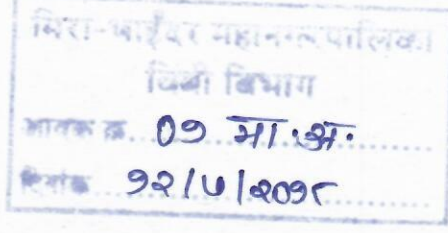 मिरा-भाईंदर महानगरपालिका
विधी विभाग
आवक क्र. ०७ मा.अ.
दिनांक १२/५/२०१८